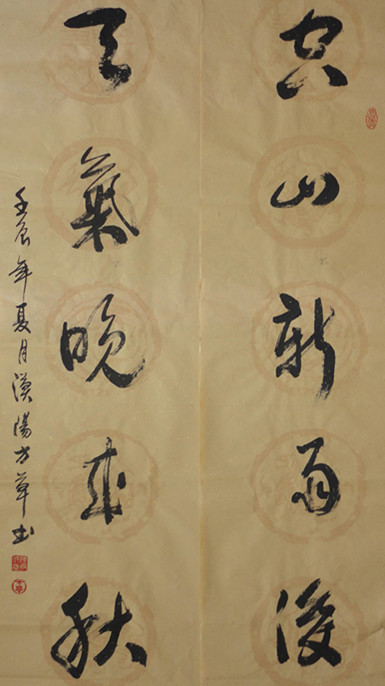 空山新雨後
天氣晚来秋
壬辰年夏月漢陽方草书